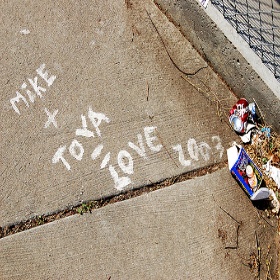 MIKE
+
TOYA
= LOVE 2003